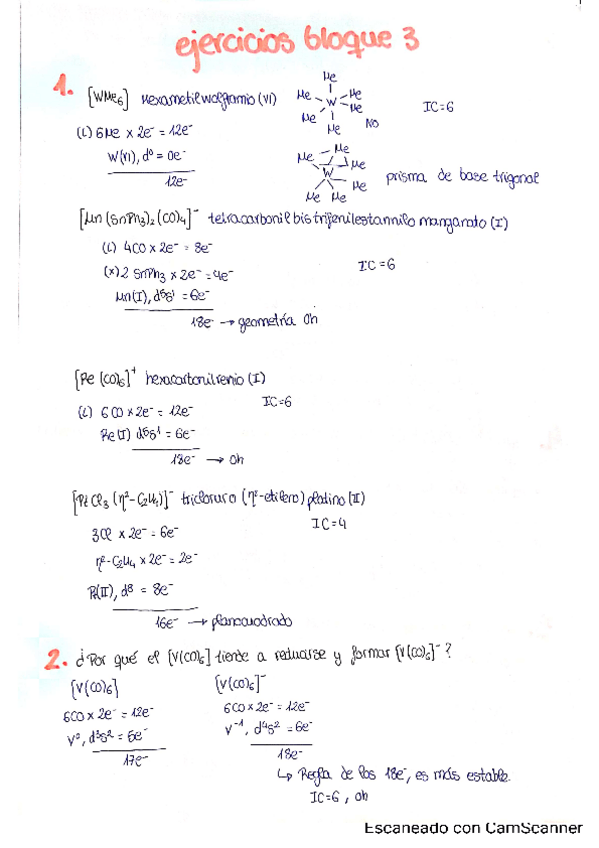 ejercicios bloque 3
1. [WMe6] Hexametilwolframio (VI) IC=6
(L) 6Me x 2e⁻ = 12e⁻
W(VI), d⁰ = 0e⁻
12e⁻
Me Me Me W Me Me Me NO
Me Me Me W Me Me Me prisma de base trigonal
[Mn (SnPh3)2 (CO)4]⁻ tetracarbonil bis trifenilestannilo manganato (I)
(L) 4CO x 2e⁻ = 8e⁻
(x) 2 SnPh3 x 2e⁻ = 4e⁻ IC=6
Mn(I), d⁵s¹ = 6e⁻
18e⁻ → geometría Oh
[Re (CO)6]⁺ hexacarbonilrenio (I)
(L) 6CO x 2e⁻ = 12e⁻ IC=6
Re(I) d⁵s¹ = 6e⁻
18e⁻ → Oh
[PtCl3 (η²-C2H4)]⁻ tricloruro (η²-etileno) platino (II)
3Cl x 2e⁻ = 6e⁻ IC=4
η²-C2H4 x 2e⁻ = 2e⁻
Pt(II), d⁸ = 8e⁻
16e⁻ → planocuadrado
2. ¿Por qué el [V(CO)6] tiende a reducirse y formar [V(CO)6]⁻?
[V(CO)6] [V(CO)6]⁻
6CO x 2e⁻ = 12e⁻ 6CO x 2e⁻ = 12e⁻
V⁰, d³s² = 5e⁻ V⁻¹, d⁴s² = 6e⁻
17e⁻ 18e⁻
↳ Regla de los 18e⁻, es más estable.
IC=6, Oh
Escaneado con CamScanner